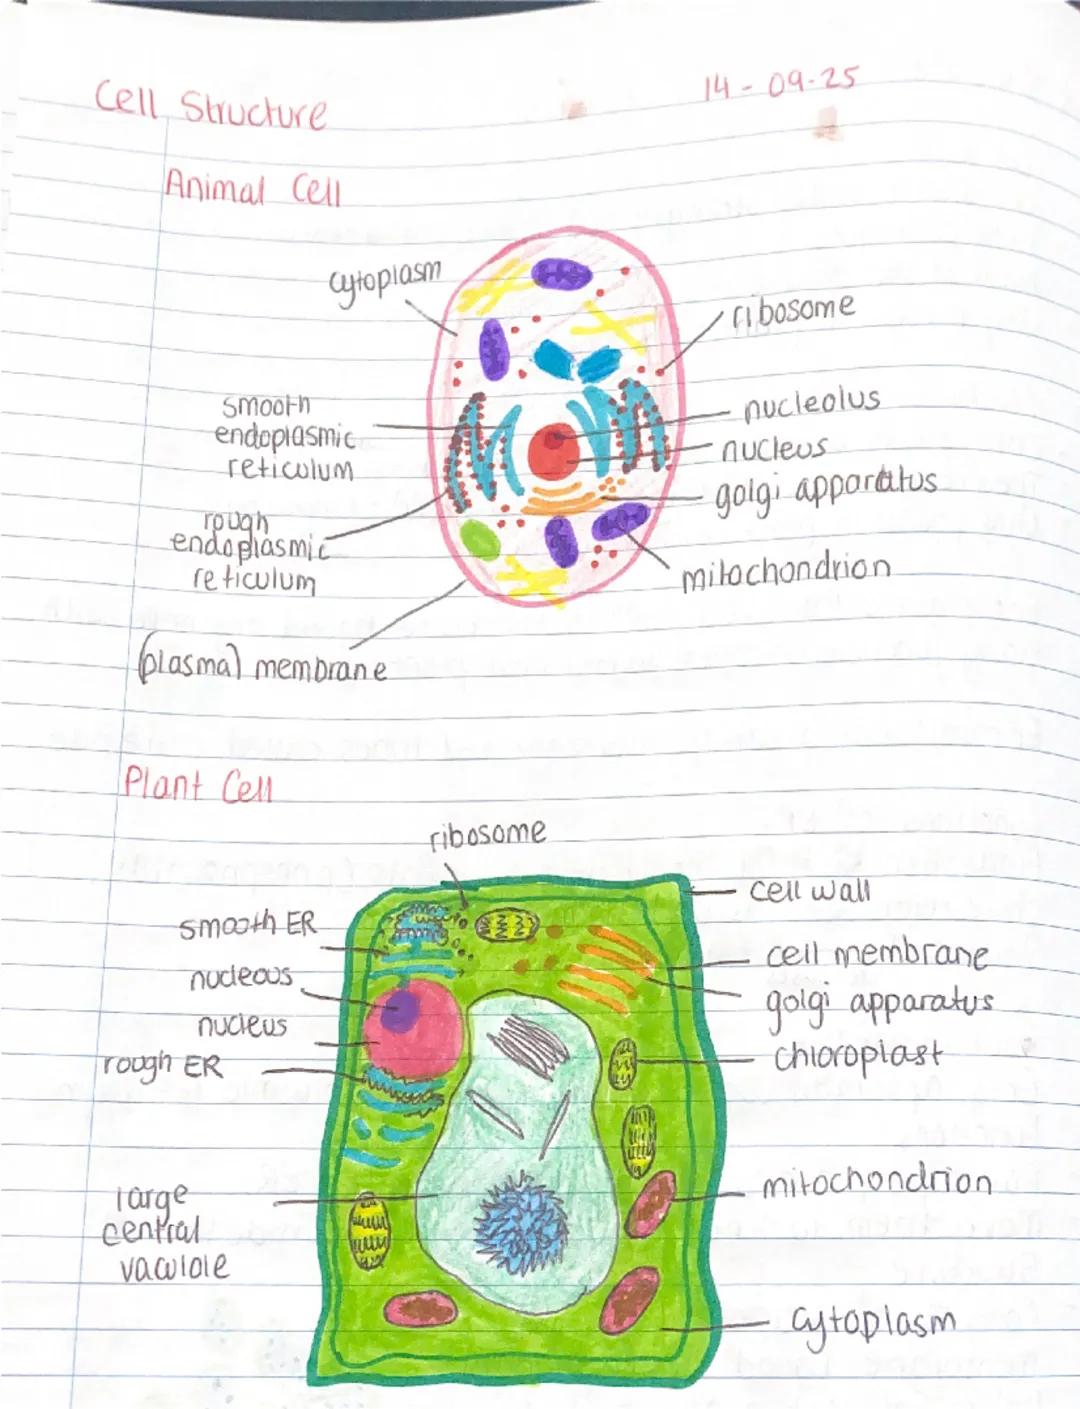 Cell Structure
14-09-25
Animal Cell
cytoplasm
ribosome
smooth
endoplasmic
reticulum
nucleolus
nucleus
golgi apparatus
rough
endoplasmic
reticulum
mitochondrion
(plasma) membrane
Plant Cell
ribosome
cell wall
smooth ER
cell membrane
nucleous
golgi apparatus
nucleus
chloroplast
rough ER
mitochondrion
large
central
vacuole
cytoplasm